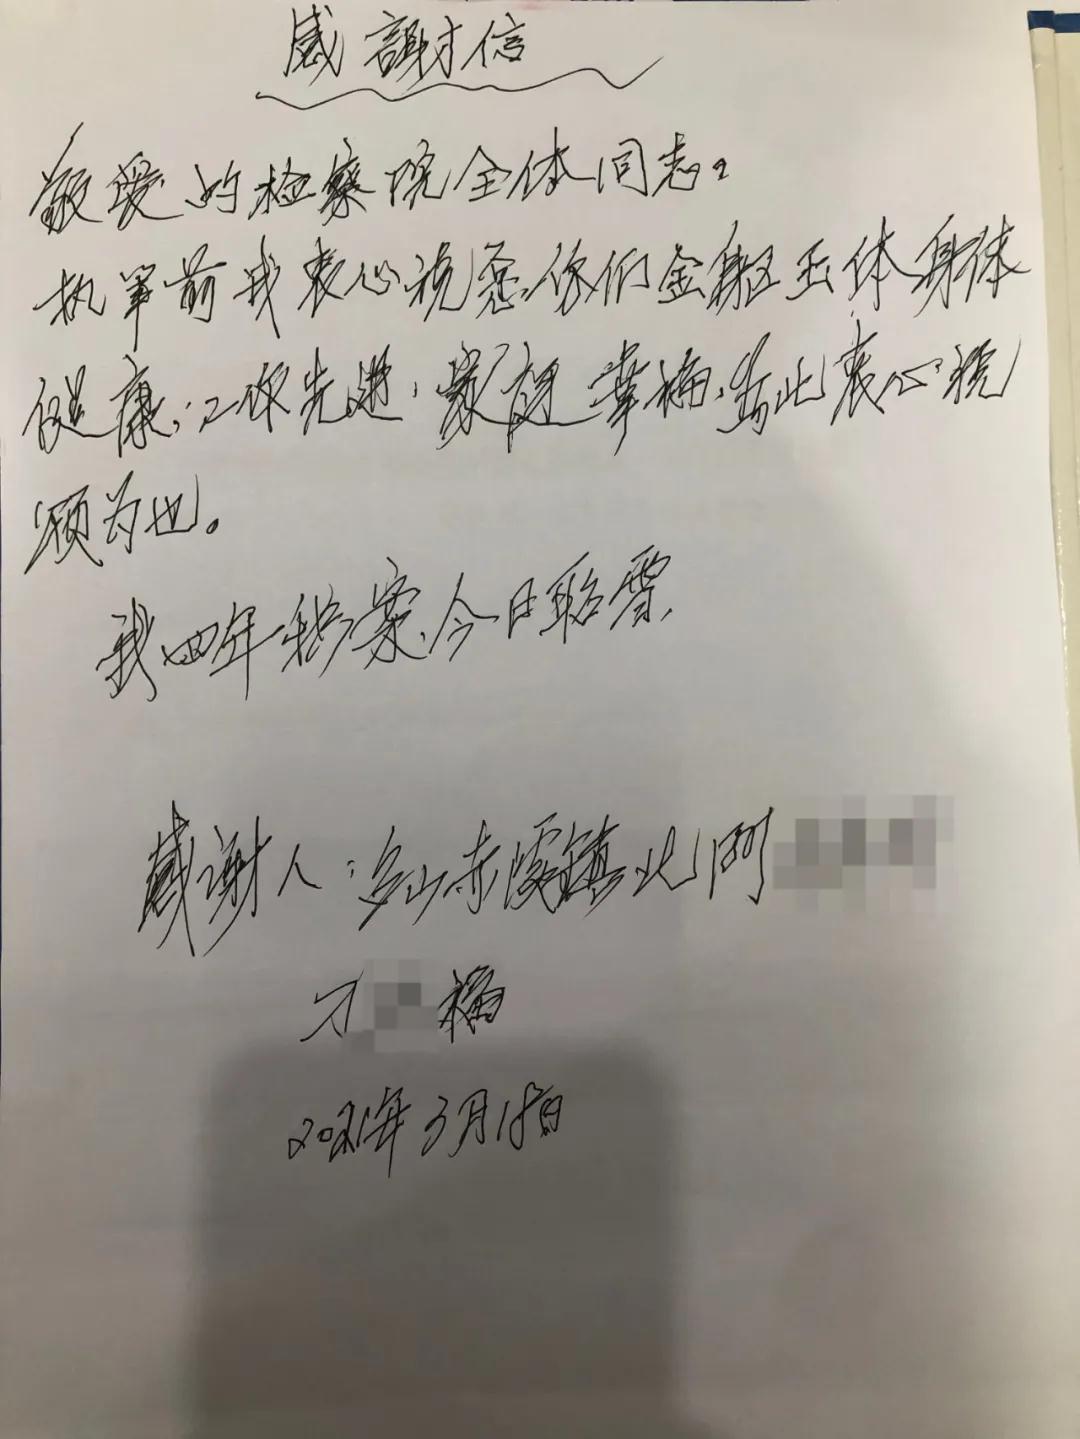 感謝信
敬爱的检察院全体同志。
执笔前我衷心祝愿你们金躯玉体身体
健康,工作先进,家庭幸福,为此衷心祝
颂为也。
我四年 案,今日昭雪,
感谢人:山赤 镇北门
刁 福
2021年3月18日